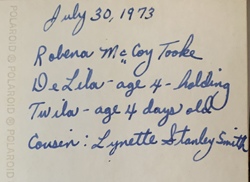 July 30, 1973
Robena McCoy Tooke
DeLila - age 4 - holding
Twila - age 4 days old
Cousin: Lynette Stanley Smith
POLAROID ® POLAROID ® POLAROID